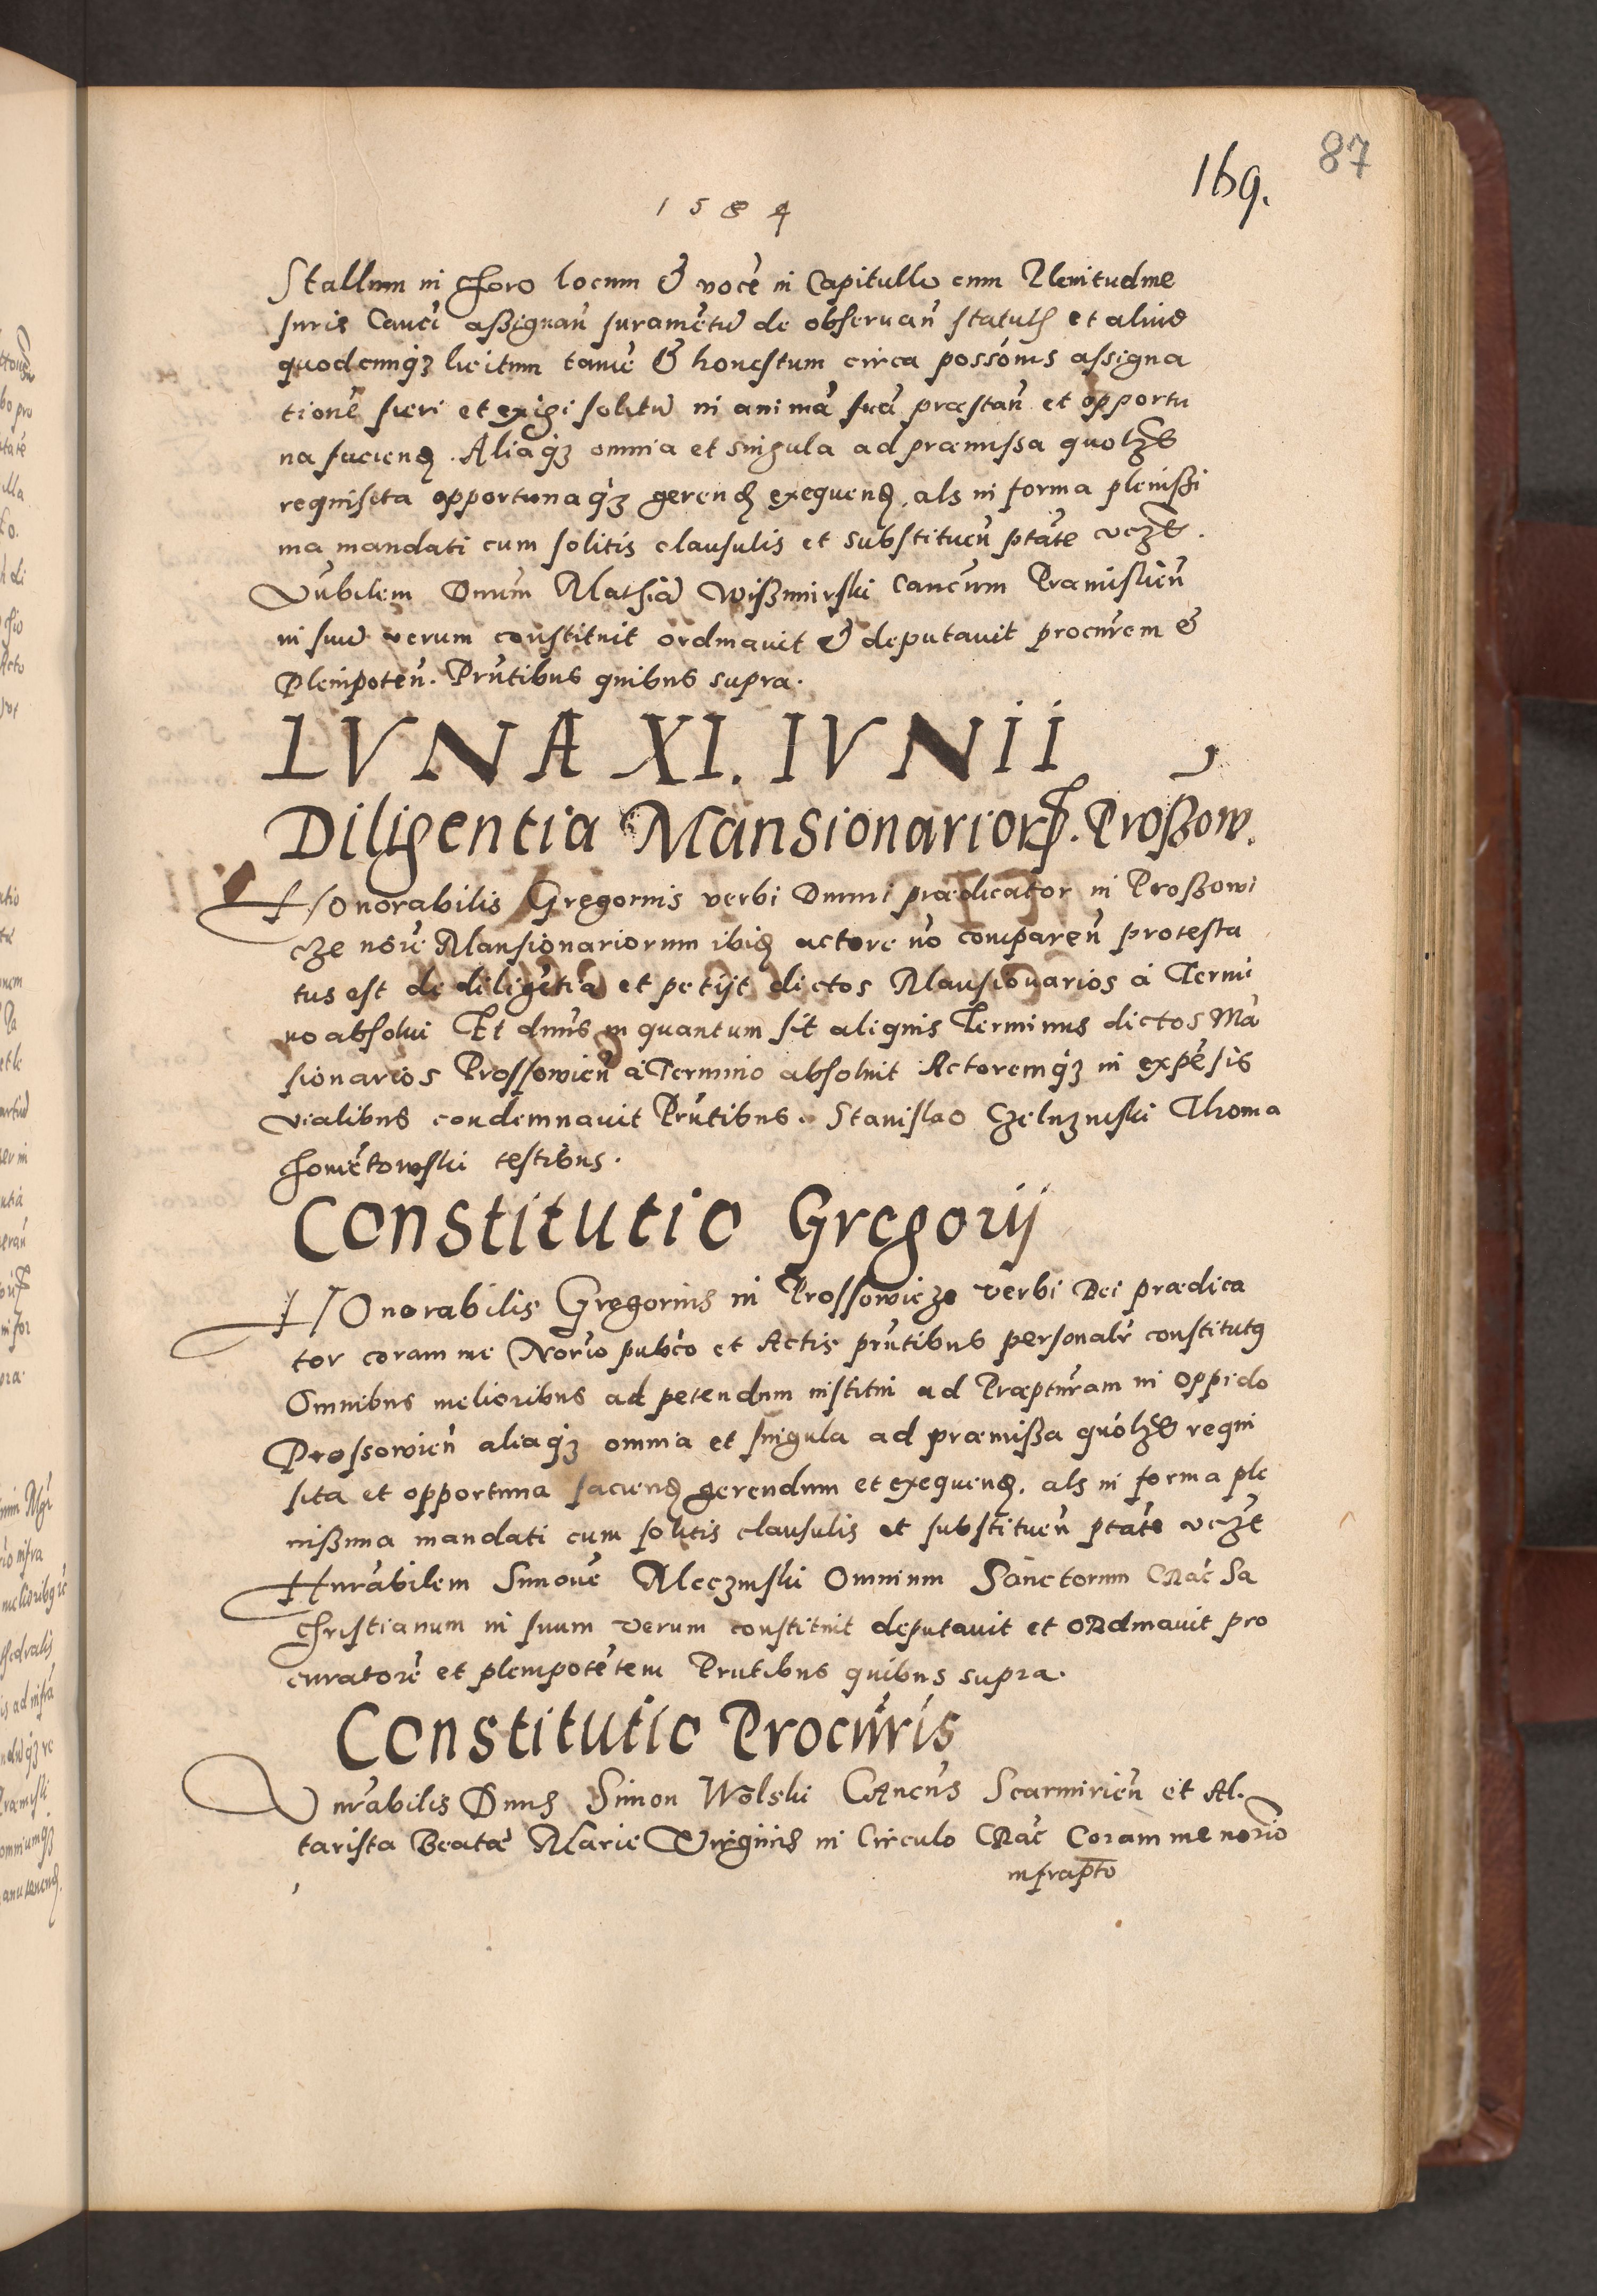 87
169.
1584
Stallum in Choro locum & vocē in Capitullo cum Plenitudine
Juris Canci aßignan̄ Juramētū de obseruan̄ statutis et aliud
quodcumq́ꝫ licitum tamē & honestum circa possōnis assigna
tionē fieri et exigi solitū in animā suā præstan̄ et opportu
na faciend. Aliaq́ꝫ omnia et singula ad præmissa quolꝫt
requisita opportunaq́ꝫ gerend exequend, als in forma plenißi
ma mandati cum solitis clausulis et substituen̄ ptāte vczt.
Vn̄bilem Dnum Mathiā Wißmirski Canc̄um Præmislien̄
in suū verum constituit ordinavit & deputavit procūrem &
Plenipoten̄. Prn̄tibus quibus supra.
LVNA XI. IVNII
Diligentia Mansionarior. Proßow.
Honorabilis Gregorius verbi Diuini prædicator in Proßowi
cze nōie Mansionariorum ibid actore nō comparen̄ protesta
tus est de diligētia et petijt dictos Mansionarios à Termi
no absolui Et dn̄us in quantum sit aliquis Terminus dictos Mā
sionarios Prossowien̄ à Termino absoluit Actoremq́ꝫ in expēsis
vialibus condemnauit Prn̄tibus. Stanislao Czeluzniski Thoma
Chomētowski testibus.
Constitutio Gregorij
Honorabilis Gregorius in Prossowicze verbi Dei prædica
tor coram me Norio pubco et Actis prn̄tibus personalr̄ constitutꝰ
Omnibus melioribus ad petendum institui ad Præptūram in oppido
Prossowien̄ aliaq́ꝫ omnia et singula ad præmißa quolꝫt requi
sita et opportuna faciend gerendum et exequend, als in forma ple
nißima mandati cum solitis clausulis et substituen̄ ptāte vczt
Hnrābilem Simonē Meczinski Omnium Sanctorum Crac̄ Sa
christianum in suum verum constituit deputavit et ordinavit pro
curatorē et plenipotētem Prn̄tibus quibus supra.
Constitutio Procūris
Vnrābilis Dnus Simon Wolski Canc̄us Scarmirien̄ et Al.
tarista Beatæ Marie Virginis in Circulo Crac̄ Coram me norio
infrapto